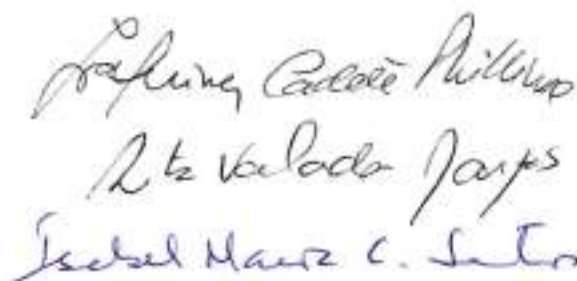 Cadete Phillips
Rita Valadas
Isabel Maria C. Santos